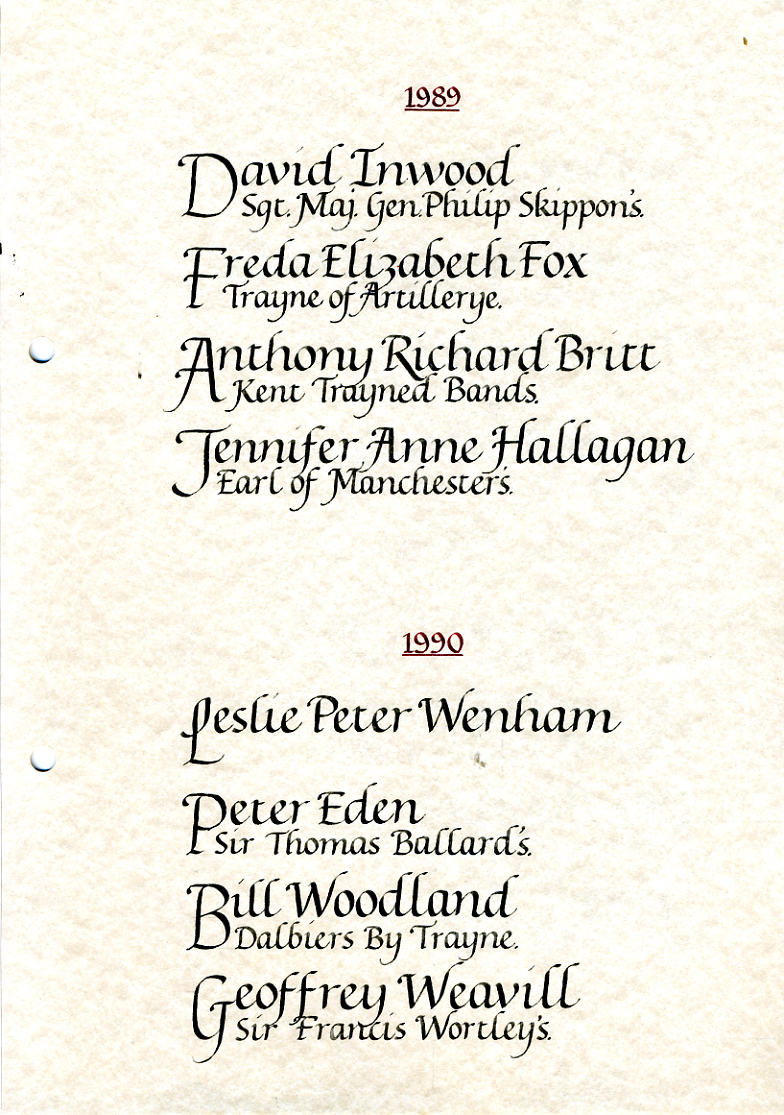 1989
David Inwood
Sgt. Maj. Gen. Philip Skippon's.
Freda Elizabeth Fox
Trayne of Artillerye.
Anthony Richard Britt
Kent Trayned Bands.
Jennifer Anne Hallagan
Earl of Manchester's.
1990
Leslie Peter Wenham
Peter Eden
Sir Thomas Ballard's.
Bill Woodland
Dalbiers By Trayne.
Geoffrey Weavill
Sir Francis Wortley's.